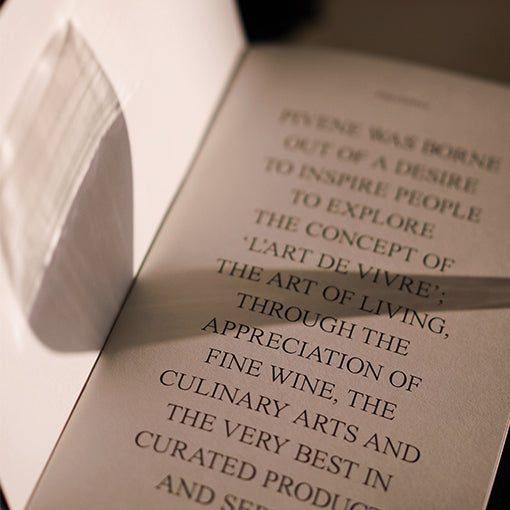 PIVENE WAS BORNE
OUT OF A DESIRE
TO INSPIRE PEOPLE
TO EXPLORE
THE CONCEPT OF
‘L’ART DE VIVRE’;
THE ART OF LIVING,
THROUGH THE
APPRECIATION OF
FINE WINE, THE
CULINARY ARTS AND
THE VERY BEST IN
CURATED
AND